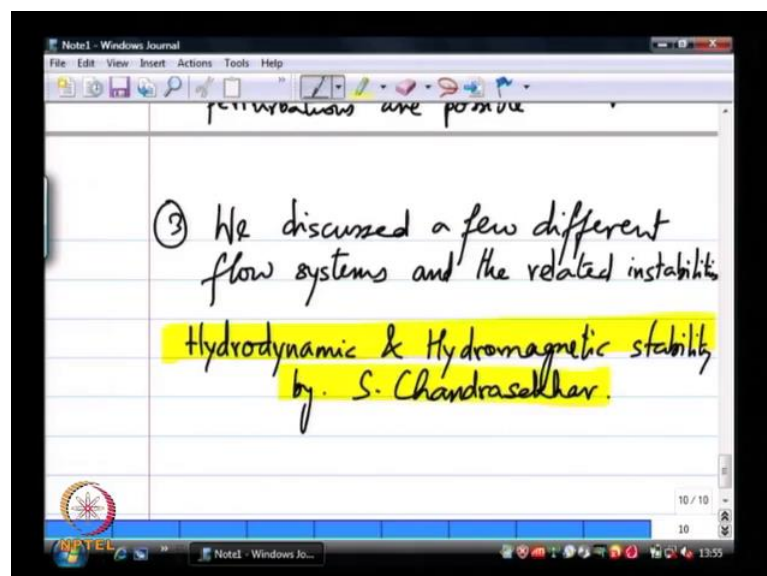 Note1 - Windows Journal
File Edit View Insert Actions Tools Help
perturbations are possible
③ We discussed a few different
flow systems and the related instabilitis
Hydrodynamic & Hydromagnetic stability
by. S. Chandrasekhar.
10 / 10
10
NPTEL
Note1 - Windows Jo...
13:55